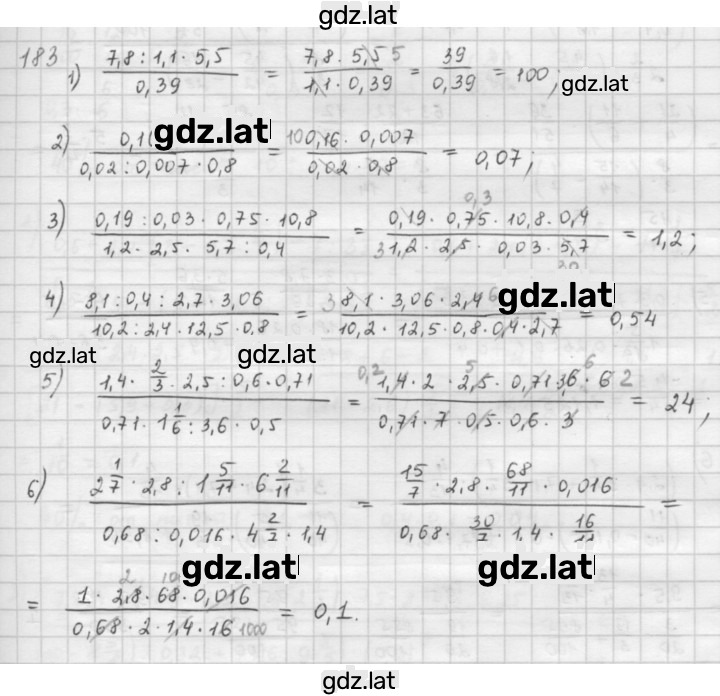 gdz.lat
183
1) (7,8 : 1,1 · 5,5)/(0,39) = (7,8 · 5,5 5)/(1,1 · 0,39) = 39/0,39 = 100;
gdz.lat
2) (0,1 gdz.lat)/(0,02 : 0,007 · 0,8) = (100,16 · 0,007)/(0,02 · 0,8) = 0,07;
3) (0,19 : 0,03 · 0,75 · 10,8)/(1,2 · 2,5 · 5,7 : 0,4) = (0,19 · 0,75 0,3 · 10,8 · 0,4)/(3 1,2 · 2,5 · 0,03 · 5,7) = 1,2;
4) (8,1 : 0,4 : 2,7 · 3,06)/(10,2 : 2,4 · 12,5 · 0,8) = (3 8,1 · 3,06 · 2,4 6)/(10,2 · 12,5 · 0,8 · 0,4 · 2,7) = 0,54
gdz.lat
gdz.lat gdz.lat
5) (1,4 · 2/3 · 2,5 : 0,6 · 0,71)/(0,71 · 1 1/6 : 3,6 · 0,5) = (0,2 1,4 · 2 · 2,5 5 · 0,71 · 3,6 6 · 6 2)/(0,71 · 7 · 0,5 · 0,6 · 3) = 24;
6) (2 1/7 · 2,8 : 1 5/11 · 6 2/11)/(0,68 : 0,016 · 4 2/7 · 1,4) = (15/7 · 2,8 · 68/11 · 0,016)/(0,68 · 30/7 · 1,4 · 16/11) =
gdz.lat gdz.lat
= (1 · 2,8 2 · 68 · 0,016)/(0,68 · 2 · 1,4 · 16 1000) = 0,1.
gdz.lat